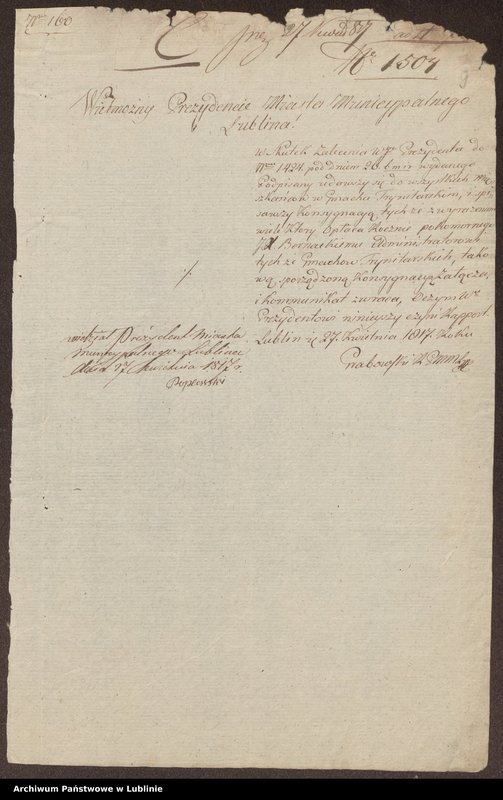 Nro 160
27 Kwiet 817
Nro 1504
Wielmozny Prezydencie Miasta Municypalnego
Lublina!
w Skutek zalecenia WPo Prezydenta do
Nru 1424. pod dniem 26. b m i r wydanego
Podpisany udawszy się do wszystkich Mie-
szkańców w Gmachu Trynitarskim, i spi-
sawszy Konsygnacyą tychże z wyrażeniem
wiele Który Opłaca Rocznie pokomornego
Bernackiemu Administratorowi
tychże Gmachow Trynitarskich, tako-
wą sporządzoną Konsygnacyą załącza,
i kommunikat zwraca, 
Prezydentowi ninieyszy czyni Rapport.
Lublin d. 27. Kwietnia 1817. Roku
Grabowski
widział Prezydent Miasta
Municypalnego Lublina
dnia 27 Kwietnia 1817 r.
Poplewski
Archiwum Państwowe w Lublinie